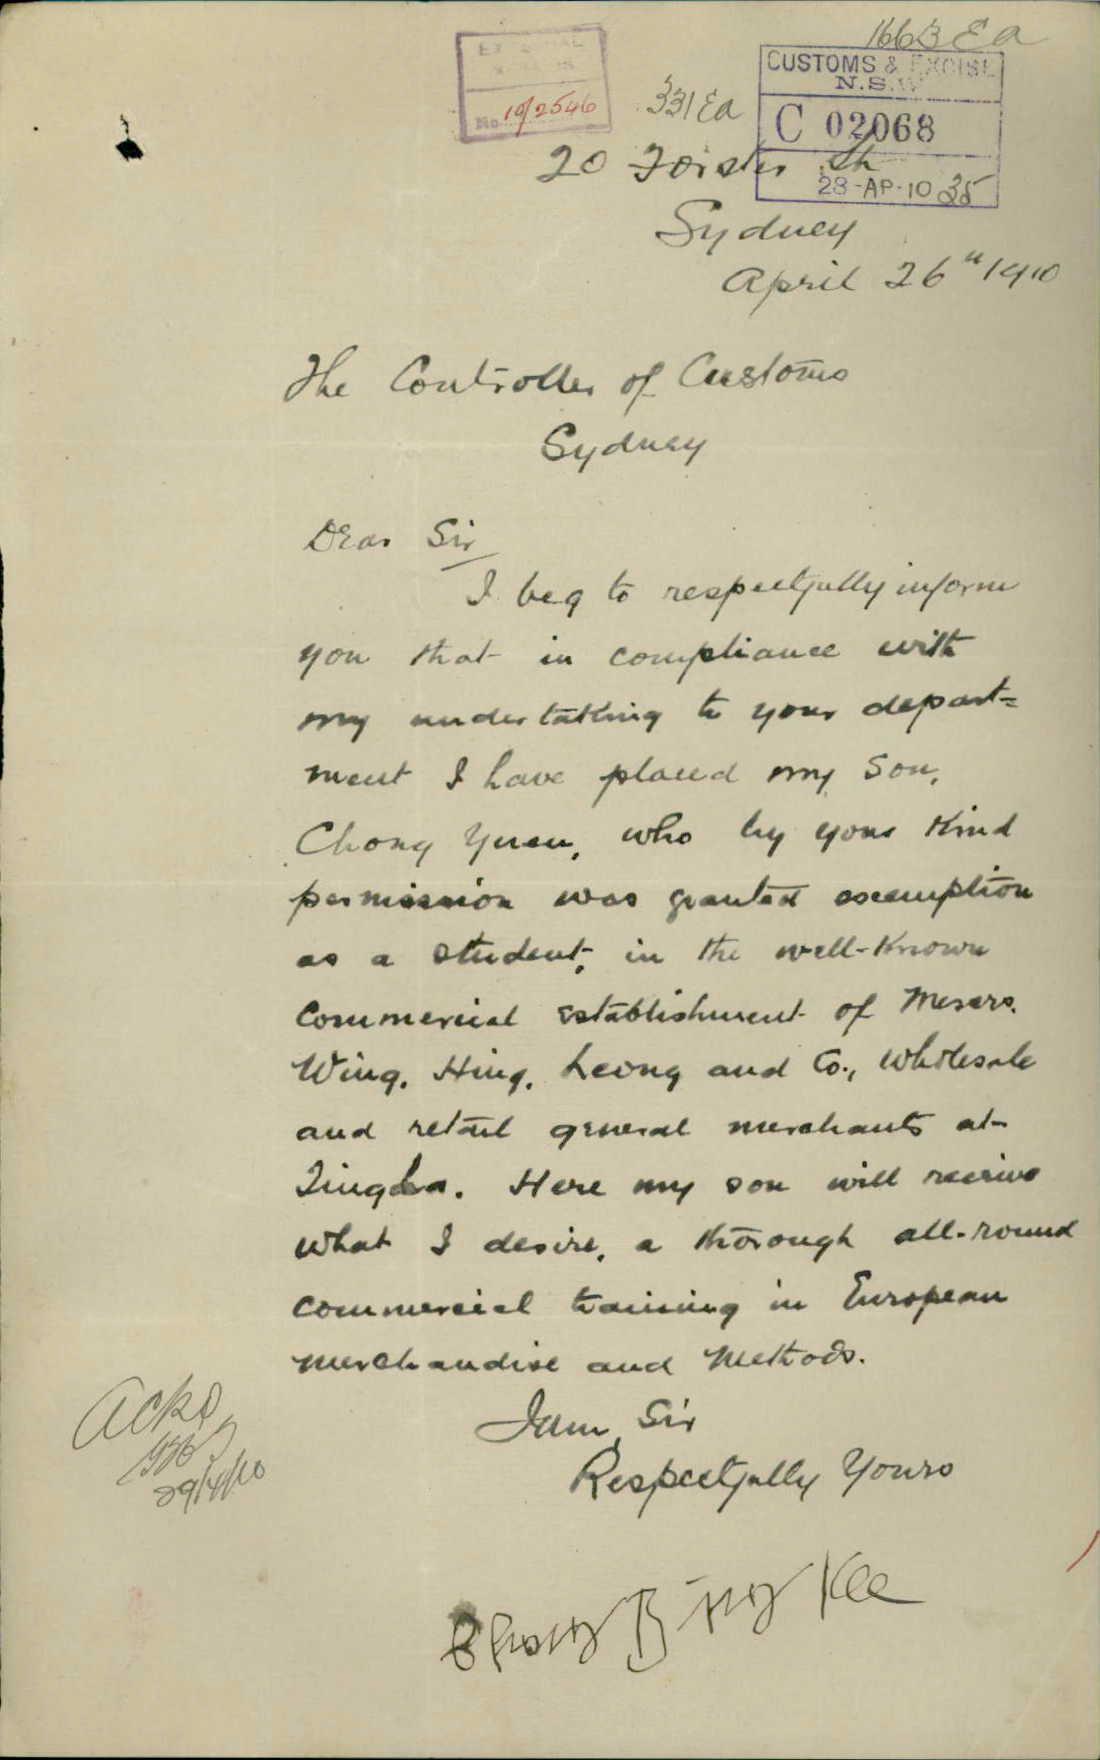 1663 Ea
EXTERNAL
No. 10/2546
331 Ea
CUSTOMS & EXCISE
N.S.W.
C 02068
28-AP-10 35
20 Forster St
Sydney
April 26th 1910
The Controller of Customs
Sydney
Dear Sir
I beg to respectfully inform
you that in compliance with
my undertaking to your depart=
ment I have placed my son,
Chong Yuen, who by your kind
permission was granted exemption
as a student, in the well-known
commercial establishment of Messrs.
Wing. Hing. Leong and Co., wholesale
and retail general merchants at
Tingha. Here my son will receive
what I desire, a thorough all-round
commercial training in European
merchandise and methods.
I am, Sir
Respectfully Yours
Chong Bing Kee
Ackd
29/4/10